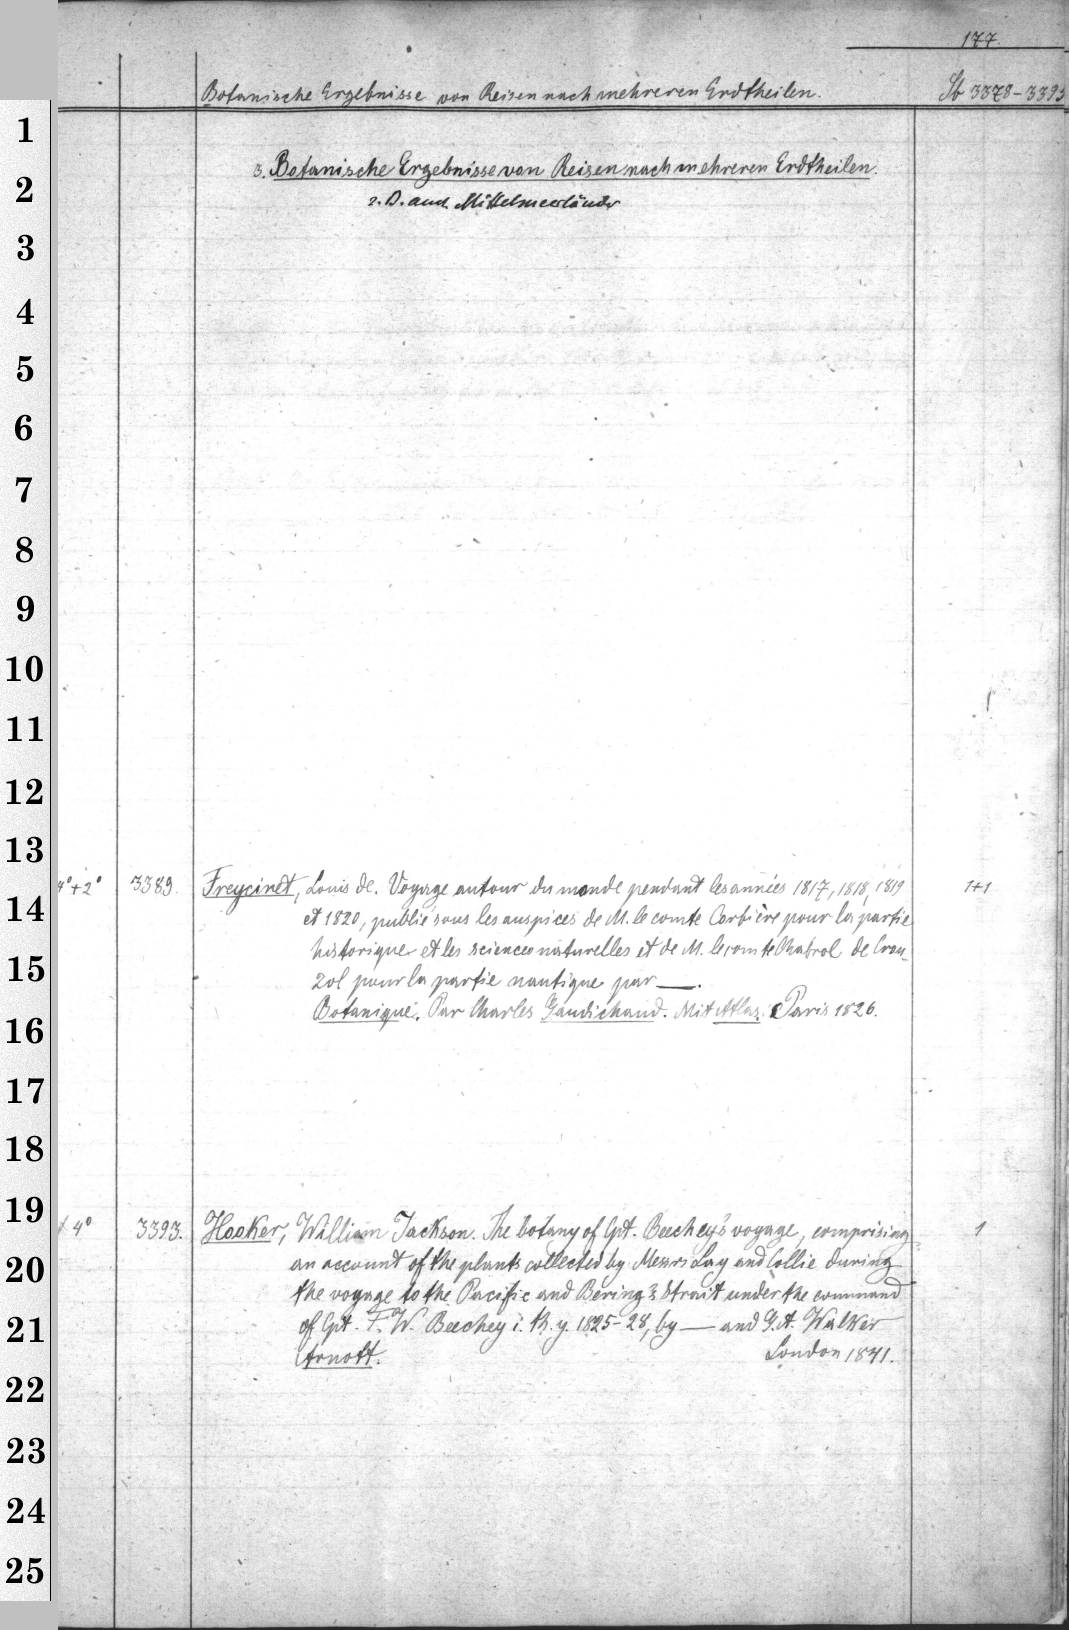 177.
Botanische Ergebnisse von Reisen nach mehreren Erdtheilen. Sb 3378-3393
1
3. Botanische Ergebnisse von Reisen nach mehreren Erdtheilen.
2
z. B. auch Mittelmeerländer
3
4
5
6
7
8
9
10
11
12
13
4°+2° 3389. Freycinet, Louis de. Voyage autour du monde pendant les années 1817, 1818, 1819 1+1
14
et 1820, publié sous les auspices de M. le comte Corbière pour la partie
historique et les sciences naturelles et de M. le comte Chabrol de Crou-
15
zol pour la partie nautique par —.
Botanique. Par Charles Gaudichaud. Mit Atlas. Paris 1826.
16
17
18
19
4° 3393. Hooker, William Jackson. The botany of Cpt. Beechey's voyage, comprising 1
an account of the plants collected by Messrs Lay and Collie during
20
the voyage to the Pacific and Bering's Strait under the command
of Cpt. F. W. Beechey i. th. y. 1825-28, by — and G. A. Walker
21
Arnott. London 1841.
22
23
24
25